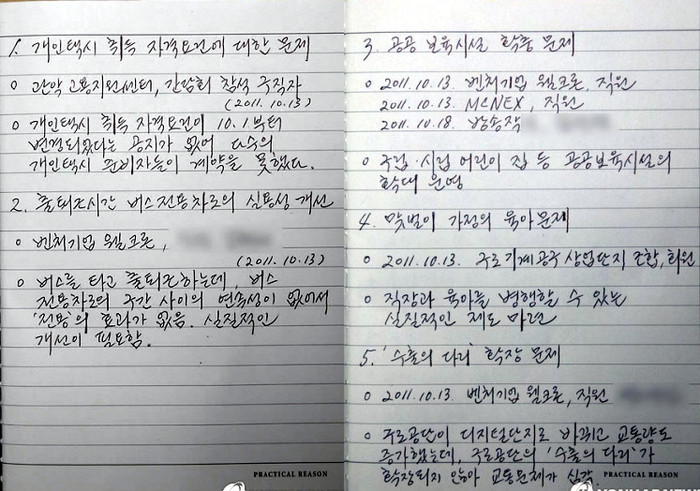 1. 개인택시 취득 자격요건에 대한 문제
○ 관악 고용지원센터, 간담회 참석 구직자
(2011. 10. 13)
○ 개인택시 취득 자격요건이 10.1부터
변경되었다는 공지가 없어 다수의
개인택시 준비자들이 계약을 못했다.
2. 출퇴근시간 버스전용차로의 실용성 개선
○ 벤처기업 웰크론,
(2011. 10. 13)
○ 버스를 타고 출퇴근하는데, 버스
전용차로의 구간 사이의 연속성이 없어서
'전용'의 효과가 없음. 실질적인
개선이 필요함.
PRACTICAL REASON
3. 공공 보육시설 확충 문제
○ 2011. 10. 13. 벤처기업 웰크론, 직원
2011. 10. 13. MCNEX, 직원
2011. 10. 18. 방송작
○ 국립·시립 어린이 집 등 공공보육시설의
확대 운영
4. 맞벌이 가정의 육아문제
○ 2011. 10. 13. 구로기계공구 상업단지 조합, 회원
○ 직장과 육아를 병행할 수 있는
실질적인 제도 마련
5. '수출의 다리' 확장 문제
○ 2011. 10. 13. 벤처기업 웰크론, 직원
○ 구로공단이 디지털단지로 바뀌고 교통량도
증가했는데, 구로공단의 '수출의 다리'가
확장되지 않아 교통문제가 심각
PRACTICAL REASON